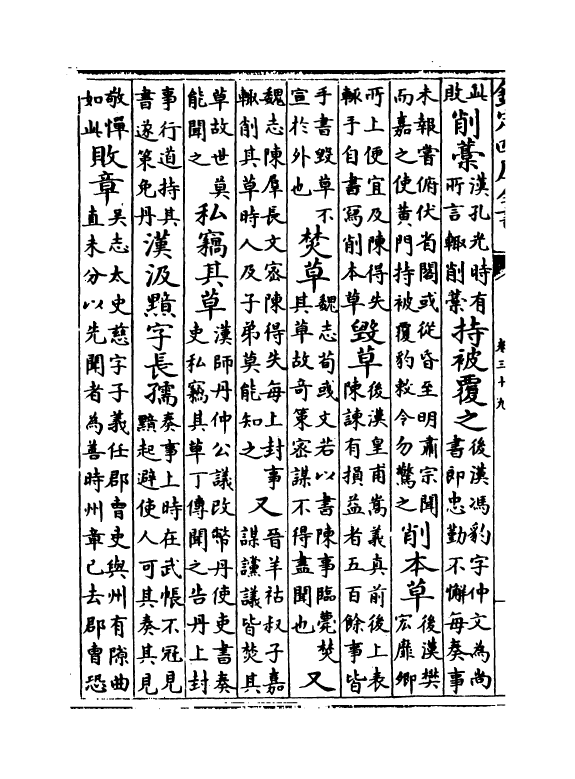 欽定四庫全書
卷三十九
此
敗
削藁
漢孔光時有
所言輒削藁
持被覆之
後漢馮豹字仲文為尚
書郎忠勤不懈每奏事
未報嘗俯伏省閣或從昏至明肅宗聞
而嘉之使黃門持被覆豹敕令勿驚之
削本草
後漢樊
宏靡卿
所上便宜及陳得失
輒手自書寫削本草
毀草
後漢皇甫嵩義真前後上表
陳諫有損益者五百餘事皆
手書毀草不
宣於外也
焚草
魏志荀彧文若以書陳事臨薨焚
其草故奇策密謀不得盡聞也
又
魏志陳羣長文密陳得失每上封事
輒削其草時人及子弟莫能知之
又
晉羊祜叔子嘉
謀讜議皆焚其
草故世莫
能聞之
私竊其草
漢師丹仲公議改幣丹使吏書奏
吏私竊其草丁傅聞之告丹上封
事行道持其
書遂策免丹
漢汲黯字長孺
奏事上時在武帳不冠見
黯起避使人可其奏其見
敬憚
如此
敗章
吳志太史慈字子義任郡曹吏與州有隙曲
直未分以先聞者為善時州章已去郡曹恐